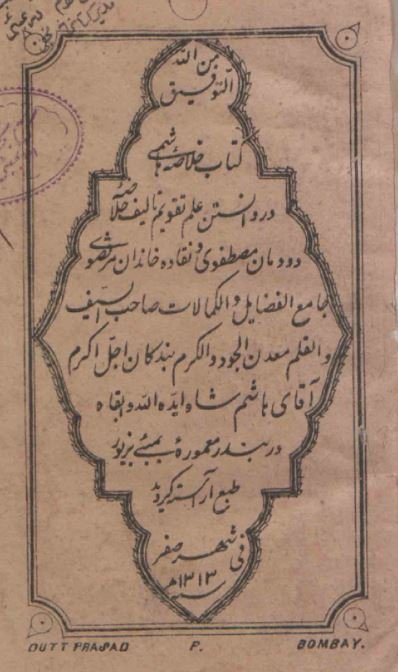 من الله
التوفیق
کتاب خلاصهٔ هاشمی
در دانستن علم تقویم تالیف خلاصهٔ
دودمان مصطفوی و نقاده خاندان مرتضوی
جامع الفضایل و الکمالات صاحب السیف
و القلم معدن الجود و الکرم بندکان اجل اکرم
آقای هاشم شاه ایده الله و ابقاه
در بندر معمورهٔ بمبئے بزیور
طبع آراسته کردید
فی شهر صفر
سنه ۱۳۱۳ه
DUTT PRASAD P. BOMBAY.